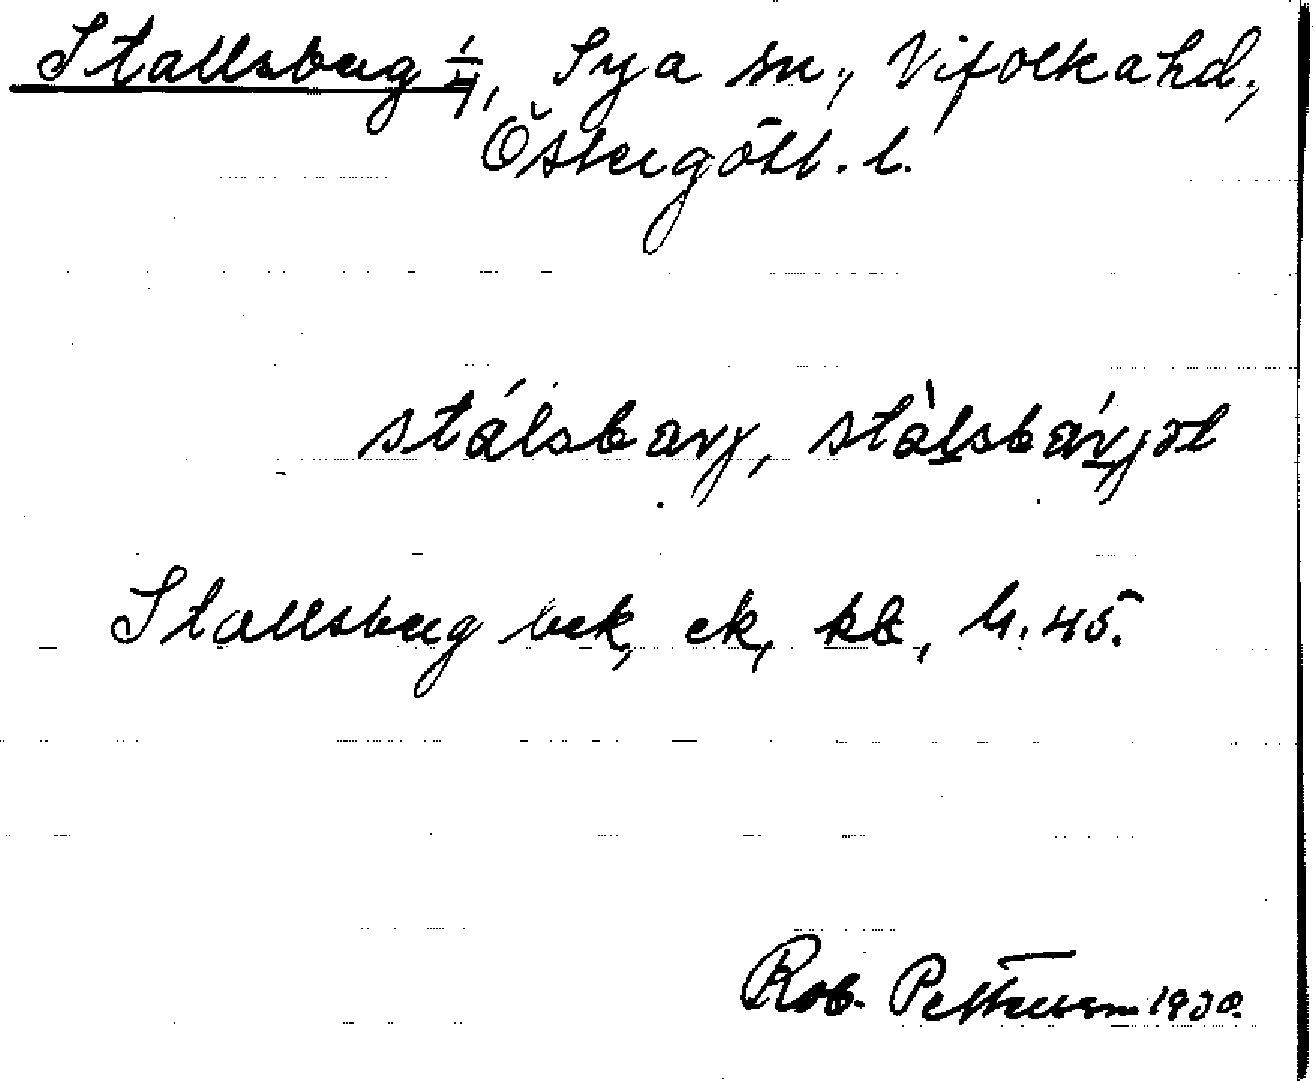 Stallsberg 1/4, Sya sn., Vifolka hd.,
Östergötl. l.
stálsbarj, stàlsbárjət
Stallsberg bek, ek, kb, M. 45.
Rob. Pettersson 1930.